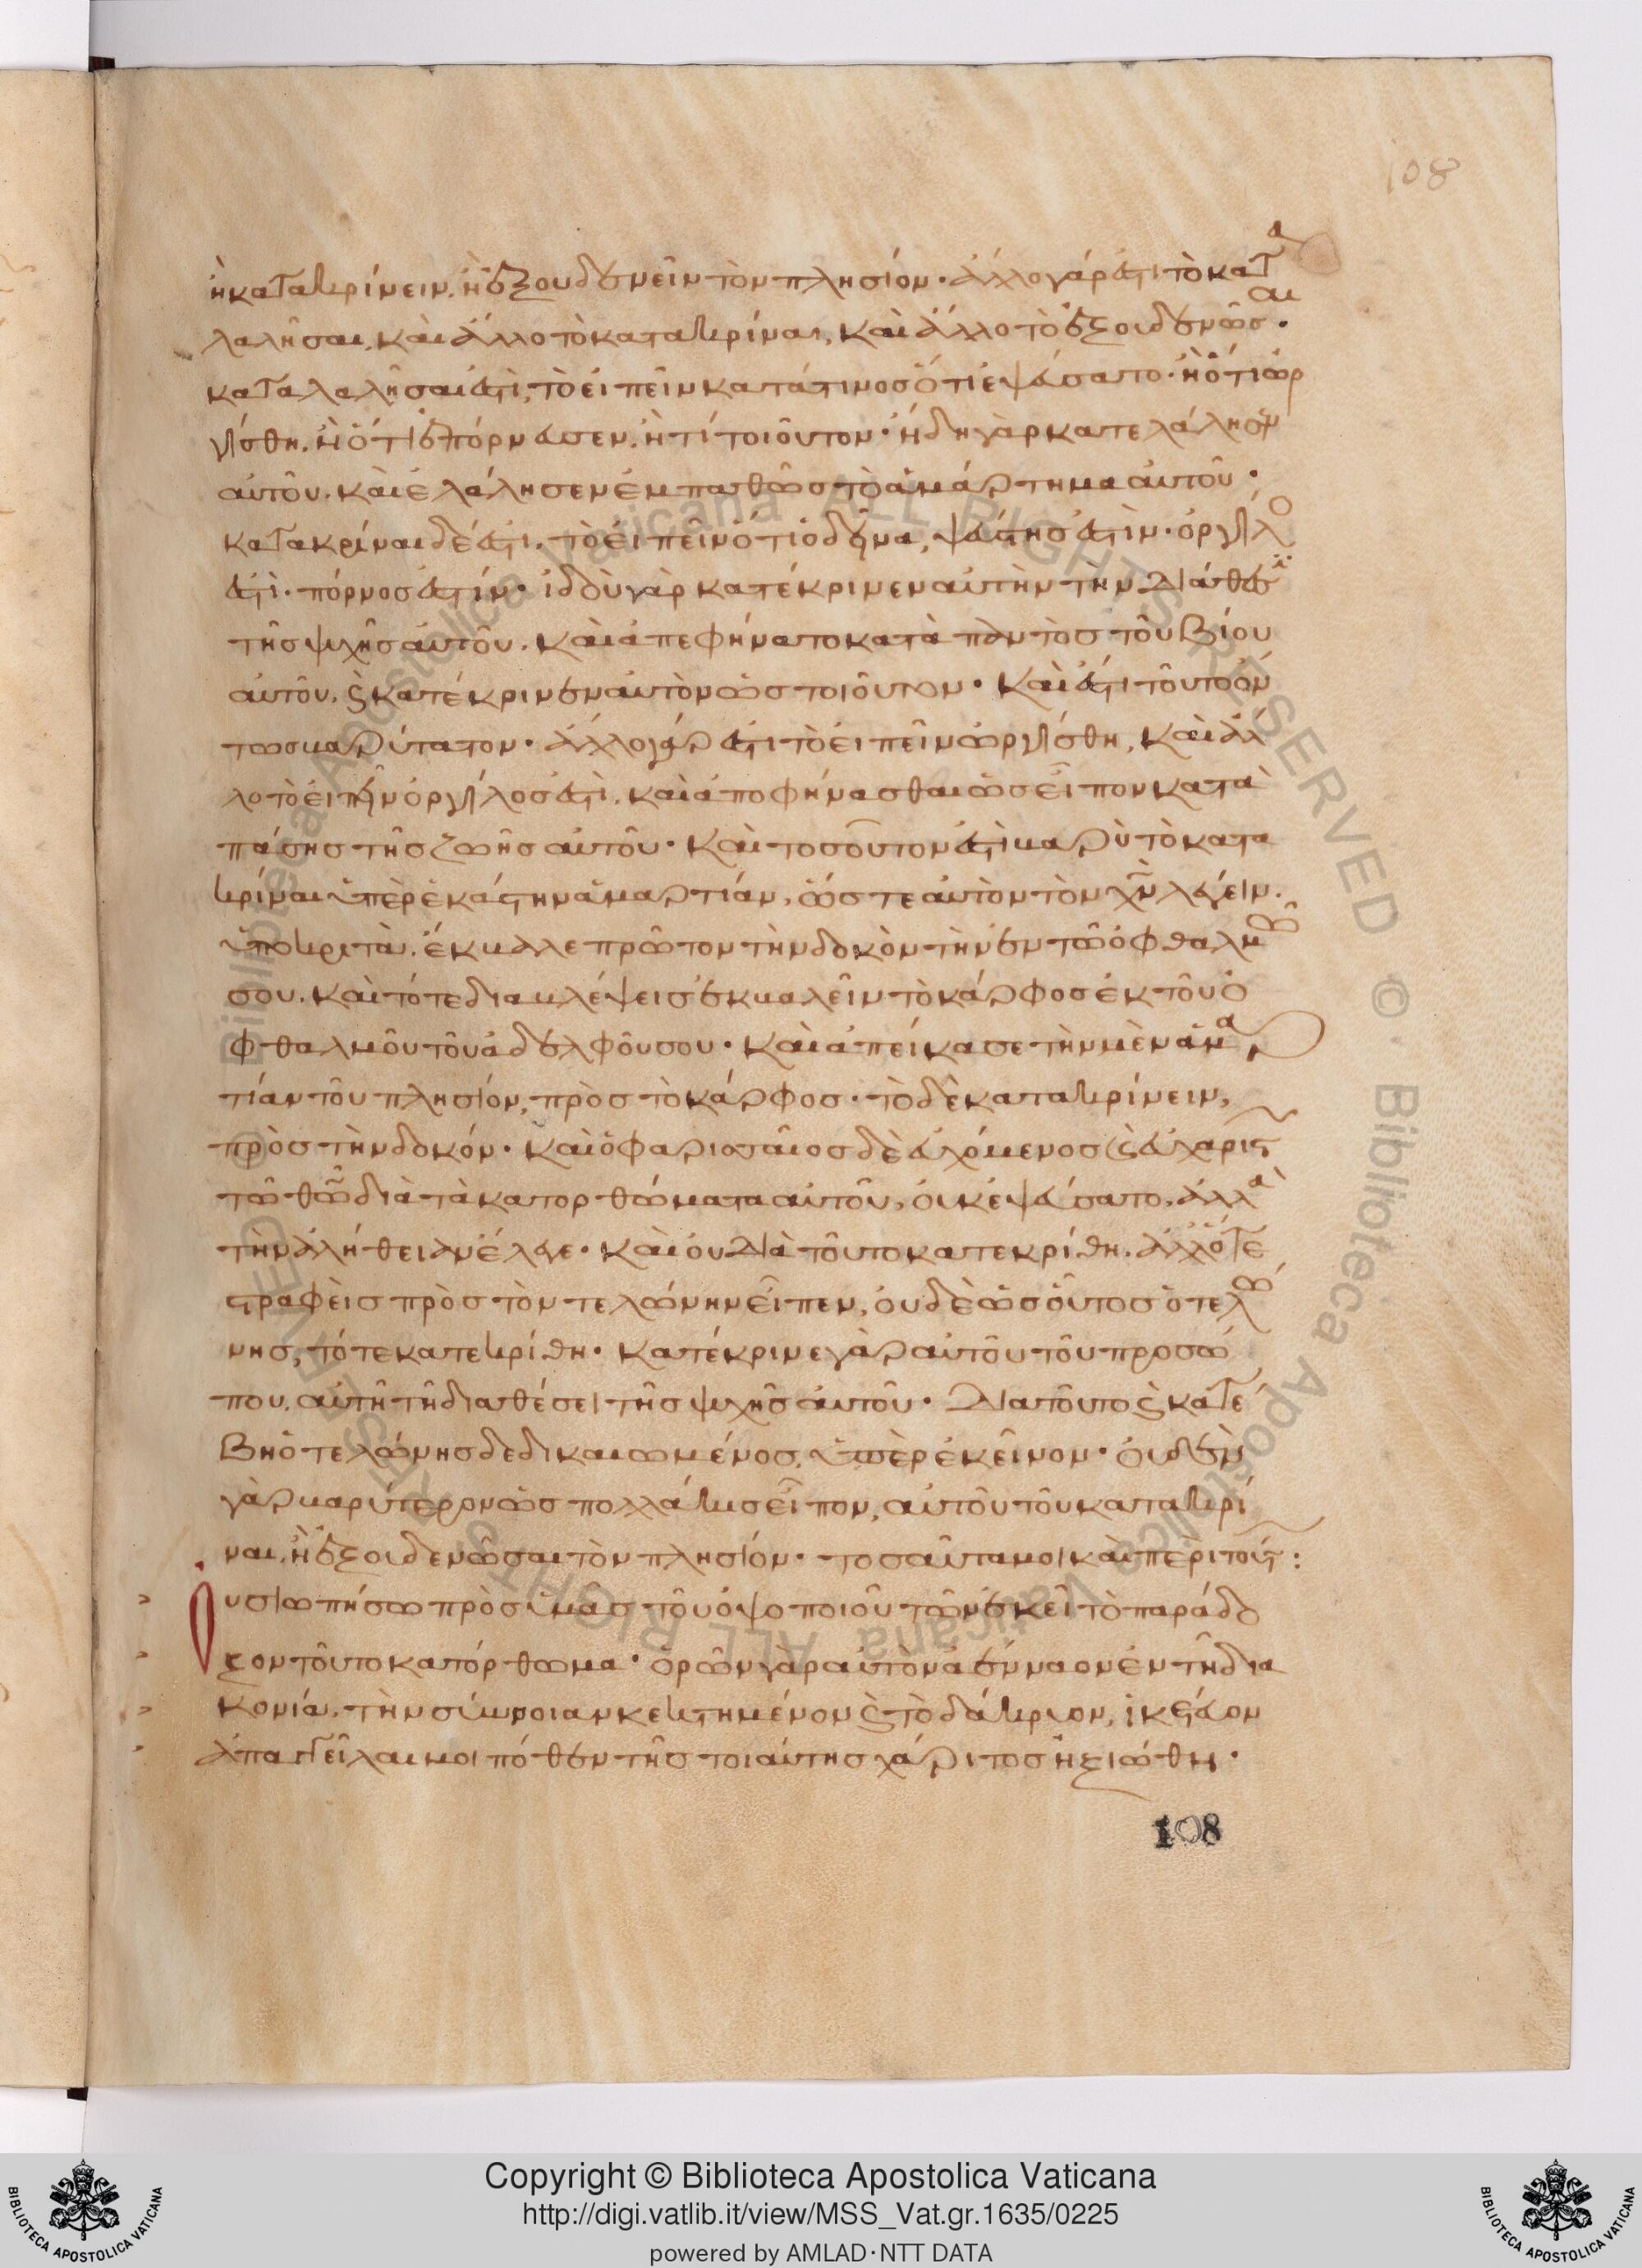 108
ἢ κατακρίνειν. ἢ ἐξουδενεῖν τὸν πλησίον· ἄλλο γάρ ἐστι τὸ κατα
λαλῆσαι, καὶ ἄλλο τὸ κατακρίναι, καὶ ἄλλο τὸ ἐξουδενῶσαι·
καταλαλῆσαι ἐστὶ, τὸ εἰπεῖν κατά τινος ὅτι ἐψεύσατο· ἢ ὅτι ὠρ
γίσθη. ἢ ὅτι ἐπόρνευσεν. ἤ τί τοιοῦτον· ἤδη γὰρ κατελάλησεν
αὐτοῦ. καὶ ἐλάλησεν ἐμπαθῶς τὸ ἁμάρτημα αὐτοῦ·
κατακρίναι δέ ἐστι, τὸ εἰπεῖν ὅτι ὁ δεῖνα, ψεύστης ἐστὶν· ὀργίλος
ἐστὶ· πόρνος ἐστίν· ἰδοὺ γὰρ κατέκρινεν αὐτὴν τὴν διάθεσιν
τῆς ψυχῆς αὐτοῦ. καὶ ἀπεφήνατο κατὰ παντὸς τοῦ βίου
αὐτοῦ. ϗ κατέκρινεν αὐτὸν ὡς τοιοῦτον· καὶ ἔστι τοῦτο ὄν
τως βαρύτατον· ἄλλο γάρ ἐστι τὸ εἰπεῖν ὠργίσθη, καὶ ἄλ
λο τὸ εἰπεῖν ὀργίλος ἐστὶ. καὶ ἀποφήνασθαι ὡς εἶπον κατὰ
πάσης τῆς ζωῆς αὐτοῦ· καὶ τοσοῦτον ἐστὶ βαρὺ τὸ κατα
κρίναι ὑπὲρ ἑκάστην ἁμαρτίαν, ὥστε αὐτὸν τὸν χ̅ν̅ λέγειν.
ὑποκριτὰ. ἔκβαλε πρῶτον τὴν δοκὸν τὴν ἐν τῶ ὀφθαλμῶ
σου. καὶ τότε διαβλέψεις ἐκβαλεῖν τὸ κάρφος ἐκ τοῦ ὀ
φθαλμοῦ τοῦ ἀδελφοῦ σου· καὶ ἀπείκασε τὴν μὲν ἁμαρ
τίαν τοῦ πλησίον, πρὸς τὸ κάρφος· τὸ δὲ κατακρίνειν,
πρὸς τὴν δοκόν· καὶ ὁ φαρισαῖος δὲ εὐχόμενος ϗ εὐχαριστῶν
τῶ θ̅ῶ̅ διὰ τὰ κατορθώματα αὐτοῦ, οὐκ ἐψεύσατο, ἀλλὰ
τὴν ἀλήθειαν ἔλεγε· καὶ οὐ διὰ τοῦτο κατεκρίθη. ἀλλ' ὅτε
στραφεὶς πρὸς τὸν τελώνην εἶπεν, οὐδὲ ὡς οὗτος ὁ τελώ
νης, τότε κατεκρίθη· κατέκρινε γὰρ αὐτοῦ τοῦ προσώ
που. αὐτῆ τῆ διαθέσει τῆς ψυχῆς αὐτοῦ· διατοῦτο ϗ κατέ
βη ὁ τελώνης δεδικαιωμένος, ὑπὲρ ἐκεῖνον· οὐδὲν
γὰρ βαρύτερον ὡς πολλάκις εἶπον, αὐτοῦ τοῦ κατακρί
ναι. ἢ ἐξουδενῶσαι τὸν πλησίον· τοσαῦτα μοι καὶ περὶ τούτου:
Οὐ σιωπήσω πρὸς ὑμᾶς τοῦ ὀψοποιοῦ τῶν ἐκεῖ τὸ παράδο
ξον τοῦτο κατόρθωμα· ὁρῶν γὰρ αὐτὸν ἀένναον ἐν τῆ δια
κονία. τὴν σύννοιαν κεκτημένον ϗ τὸ δάκρυον, ἱκέτευον
ἀπαγγεῖλαι μοι πόθεν τῆς τοιαύτης χάριτος ἠξιώθη·
108
Copyright © Biblioteca Apostolica Vaticana
http://digi.vatlib.it/view/MSS_Vat.gr.1635/0225
powered by AMLAD·NTT DATA